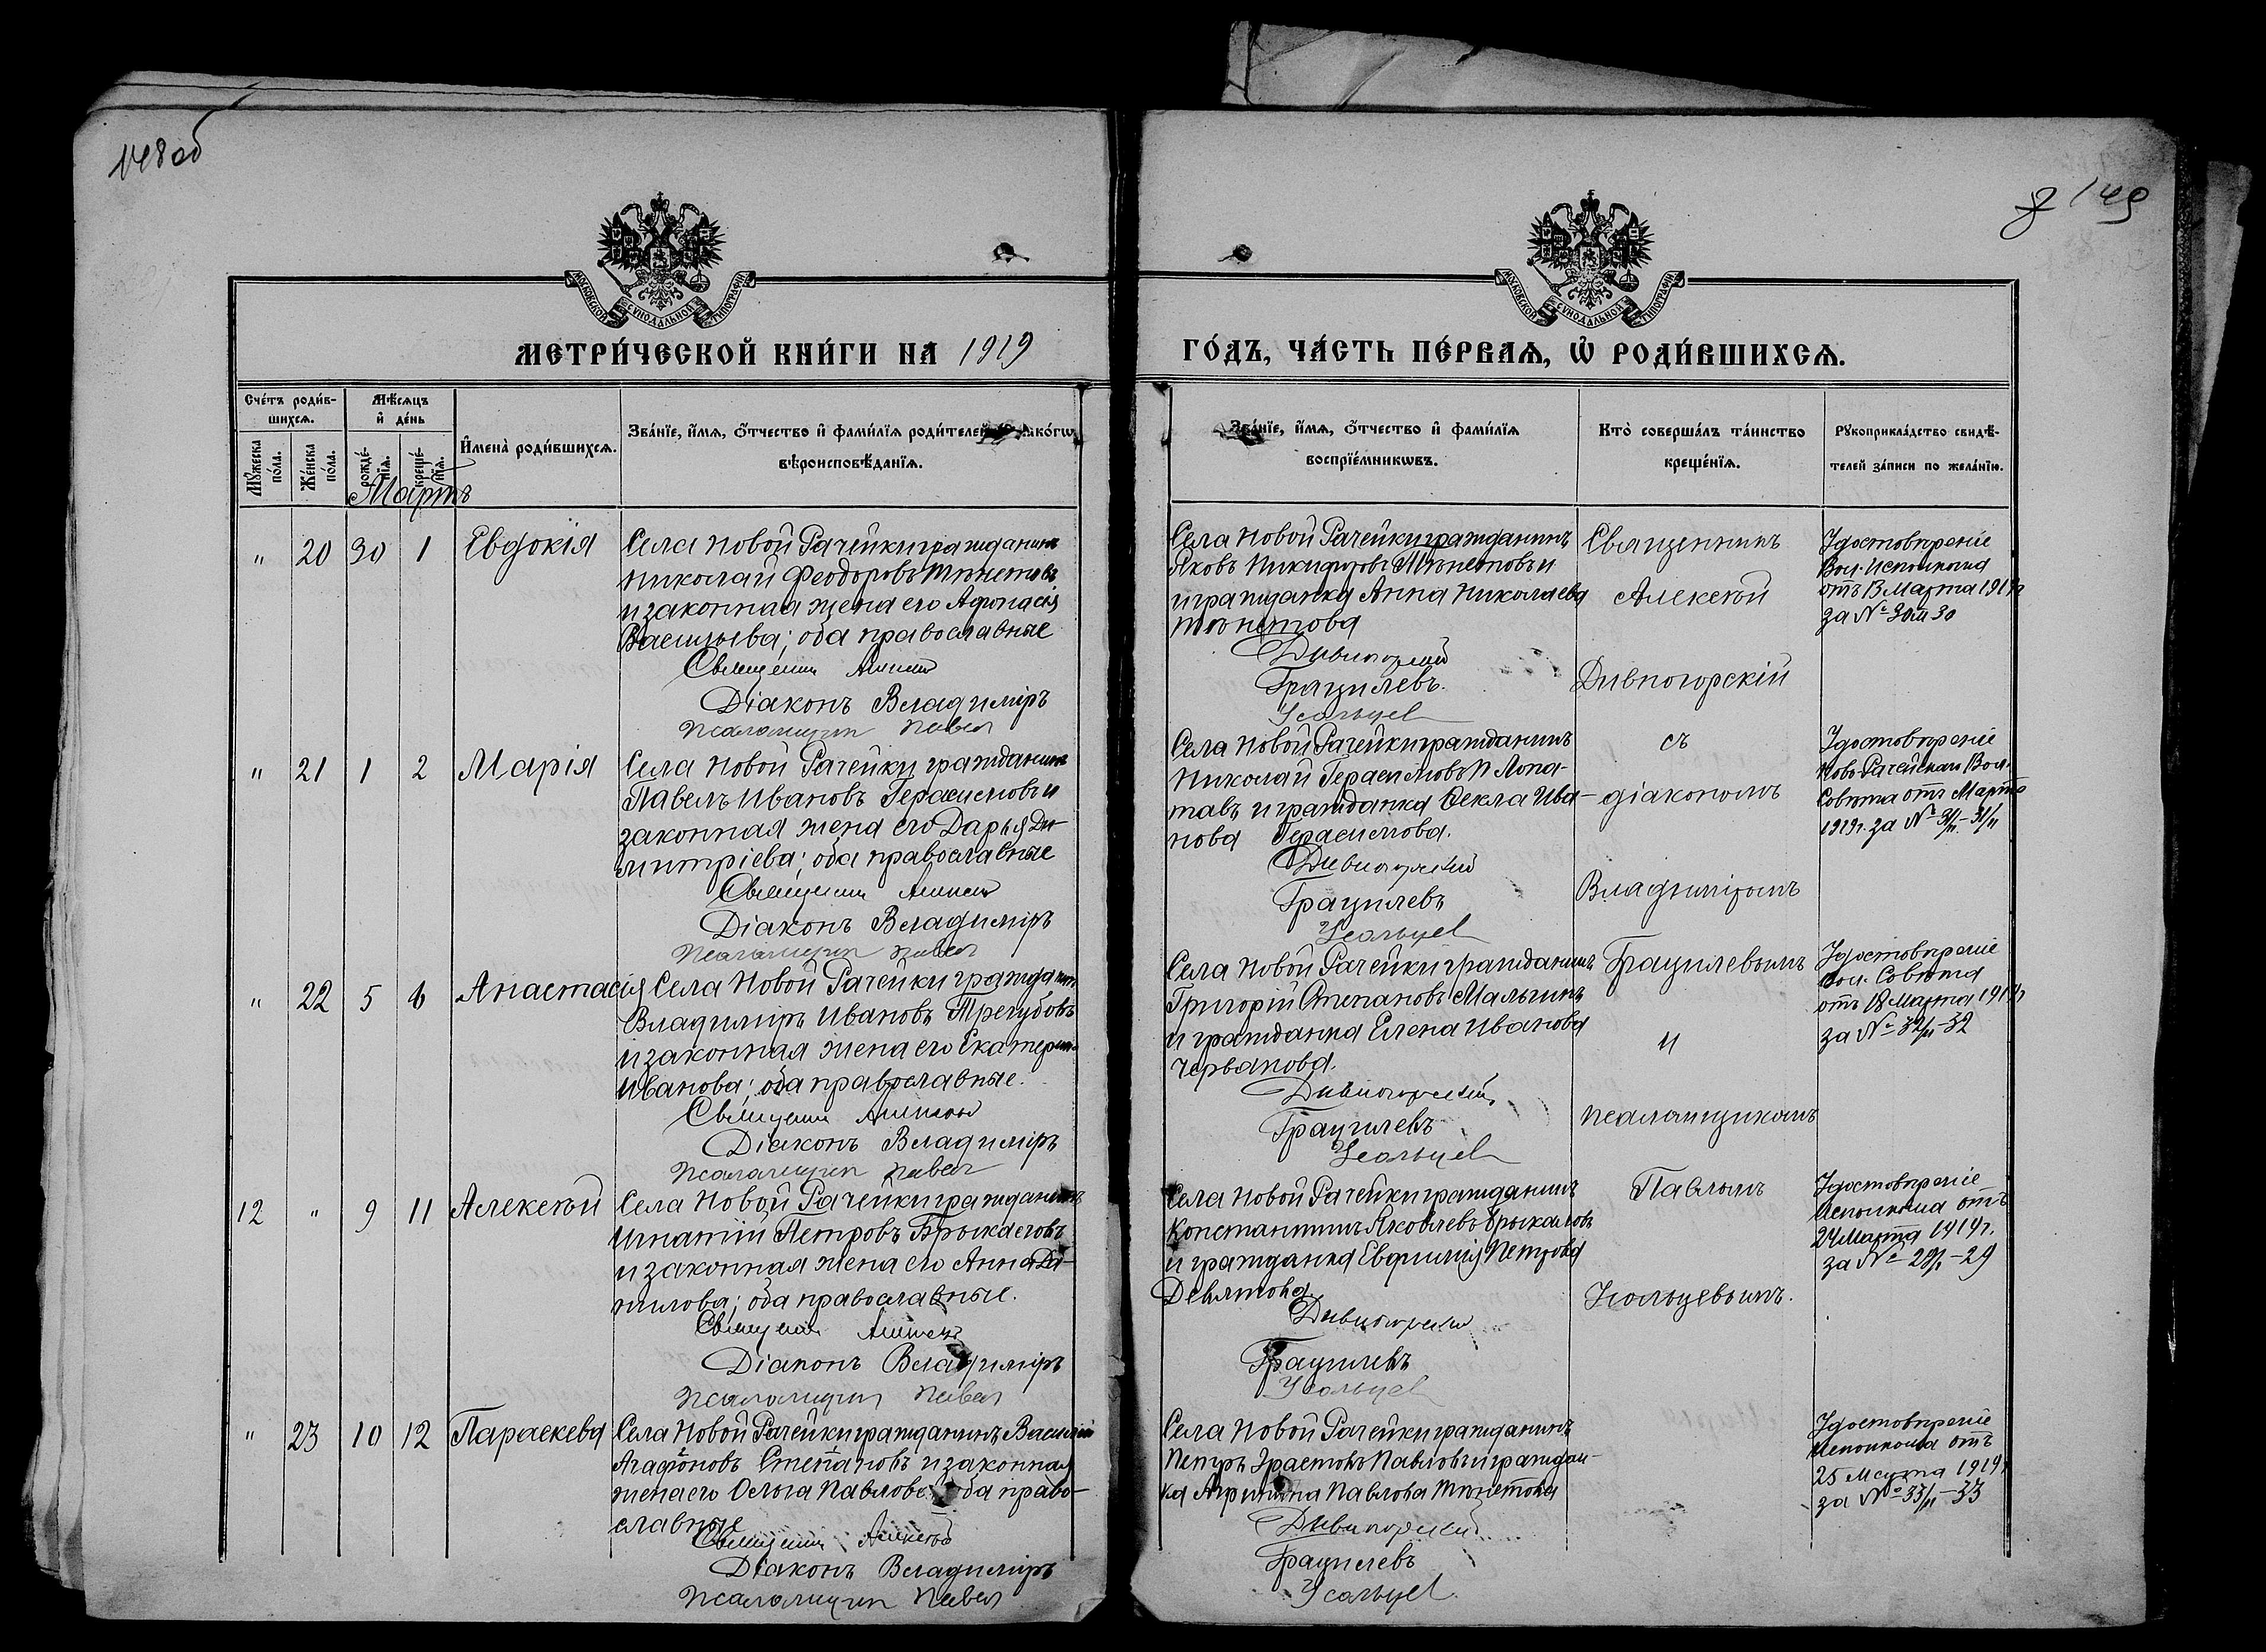 148 об
149
МОСКОВСКОЙ СѴНОДАЛЬНОЙ ТИПОГРАФІИ
МОСКОВСКОЙ СѴНОДАЛЬНОЙ ТИПОГРАФІИ
МЕТРИ́ЧЕСКОЙ КНИ́ГИ НА 1919
ГО́ДЪ, ЧА́СТЬ ПЕ́РВАѦ, Ѡ҆ РОДИ́ВШИХСѦ.
Сче́тъ роди́в-
шихсѧ.
Мꙋ́жеска
по́ла.
Же́нска
по́ла.
Мѣ́сѧцъ
и҆ де́нь
рожде́-
нїѧ.
креще́-
нїѧ.
И҆мена̀ роди́вшихсѧ.
Зва́нїе, и҆́мѧ, ѻ҆́тчество и҆ фами́лїѧ роди́телей
вѣроисповѣ́данїѧ.
Зва́нїе, и҆́мѧ, ѻ҆́тчество и҆ фами́лїѧ
воспрїе́мникѡвъ.
Кто̀ соверша́лъ та́инство
креще́нїѧ.
Рꙋкоприкла́дство свидѣ́-
телей за́писи по жела́нїю.
Мартъ
" 20 30 1 Евдокія
Села Новой Рачейки гражданинъ
Николай Феодоровъ Тѣнетовъ
и законная жена его Афонасія
Васильева; оба православные
Священникъ Алексій
Діаконъ Владиміръ
Псаломщикъ Павел
Села Новой Рачейки гражданинъ
Яковъ Никифоровъ Тѣнетовъ и
и гражданка Анна Николаева
Тѣнетова
Дивногорский
Грацилевъ.
Усольцев
Удостовѣреніе
Вол. Исполкома
отъ 13 Марта 1919 г
за №
" 21 1 2 Марія
Села Новой Рачейки гражданинъ
Павелъ Ивановъ Герасимовъ и
законная жена его Дарья Ди-
митріева; оба православные
Священникъ Алексій
Діаконъ Владиміръ
Псаломщикъ Павел
Села Новой Рачейки гражданинъ
Николай Герасимовъ Лопа-
тавъ и гражданка Фекла Ива-
нова Герасимова.
Дивногорский
Грацилевъ
Усольцев
Удостовѣреніе
Ново-Рачейскаго Вол.
Совѣта отъ Марта
1919 г. за № 31/II-31/II
" 22 5 6 Анастасія
Села Новой Рачейки гражданинъ
Владиміръ Ивановъ Трегубовъ
и законная жена его Екатерина
Иванова; оба православные.
Священникъ Алексій
Діаконъ Владиміръ
Псаломщикъ Павел
Села Новой Рачейки гражданинъ
Григорій Степановъ Мальгинъ
и гражданка Елена Иванова
Червякова.
Дивногорский
Грацилевъ
Усольцев
Удостовѣреніе
Вол. Совѣта
отъ 18 Марта 1919 г
за № 32/II-32
12 " 9 11 Алексѣй
Села Новой Рачейки гражданинъ
Игнатій Петровъ Брыкаловъ
и законная жена его Анна Да-
нилова; оба православные.
Священникъ Алексій
Діаконъ Владиміръ
Псаломщикъ Павел
Села Новой Рачейки гражданинъ
Константинъ Яковлевъ Брыкаловъ
и гражданка Евфимія Петрова
Девятова.
Дивногорский
Грацилевъ
Усольцев
Удостовѣреніе
Исполкома отъ
24 Марта 1919 г.
за № 29/II-29
" 23 10 12 Параскева
Села Новой Рачейки гражданинъ Василій
Агафоновъ Степановъ и законная
жена его Ольга Павлова; оба право-
славные
Священникъ Алексѣй
Діаконъ Владиміръ
Псаломщикъ Павел
Села Новой Рачейки гражданинъ
Петръ Эрастовъ Павловъ и граждан-
ка Агрипина Павлова Тѣнетова
Дивногорский
Грацилевъ
Усольцев
Удостовѣреніе
Исполкома отъ
25 Марта 1919 г
за № 33/II-33
Священникъ
Алексѣй
Дивногорскій
съ
діакономъ
Владиміромъ
Грацилевымъ
и
псаломщикомъ
Павломъ
Усольцевымъ.